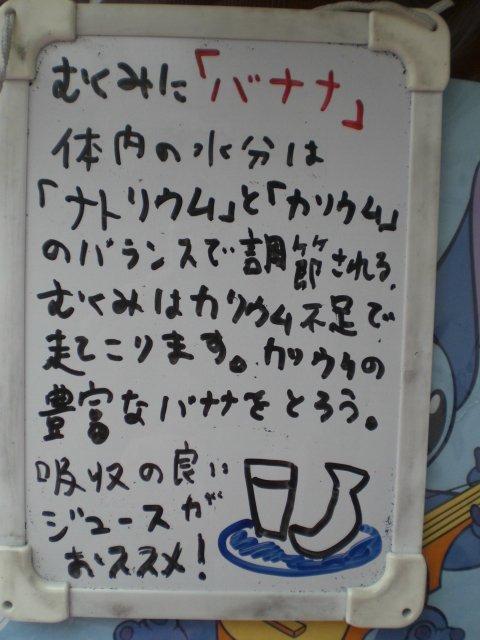 むくみに「バナナ」
体内の水分は
「ナトリウム」と「カリウム」
のバランスで調節される。
むくみはカリウム不足で
起こります。カリウムの
豊富なバナナをとろう。
吸収の良い
ジュースが
おススメ!